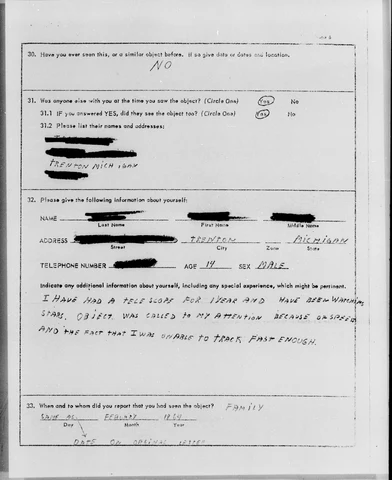 30. Have you ever seen this, or a similar object before. If so give date or dates and location.
NO
31. Was anyone else with you at the time you saw the object? (Circle One) Yes No
31.1 IF you answered YES, did they see the object too? (Circle One) Yes No
31.2 Please list their names and addresses:
TRENTON MICHIGAN
32. Please give the following information about yourself:
NAME
Last Name First Name Middle Name
ADDRESS TRENTON MICHIGAN
Street City Zone State
TELEPHONE NUMBER AGE 14 SEX MALE
Indicate any additional information about yourself, including any special experience, which might be pertinent.
I HAVE HAD A TELE SCOPE FOR 1 YEAR AND HAVE BEEN WATCHING
STARS. OBJECT WAS CALLED TO MY ATTENTION BECAUSE OF SPEED
AND THE FACT THAT I WAS UNABLE TO TRACK FAST ENOUGH.
33. When and to whom did you report that you had seen the object? FAMILY
SAME AS
Day Month Year
DATE ON ORIGINAL LETTER